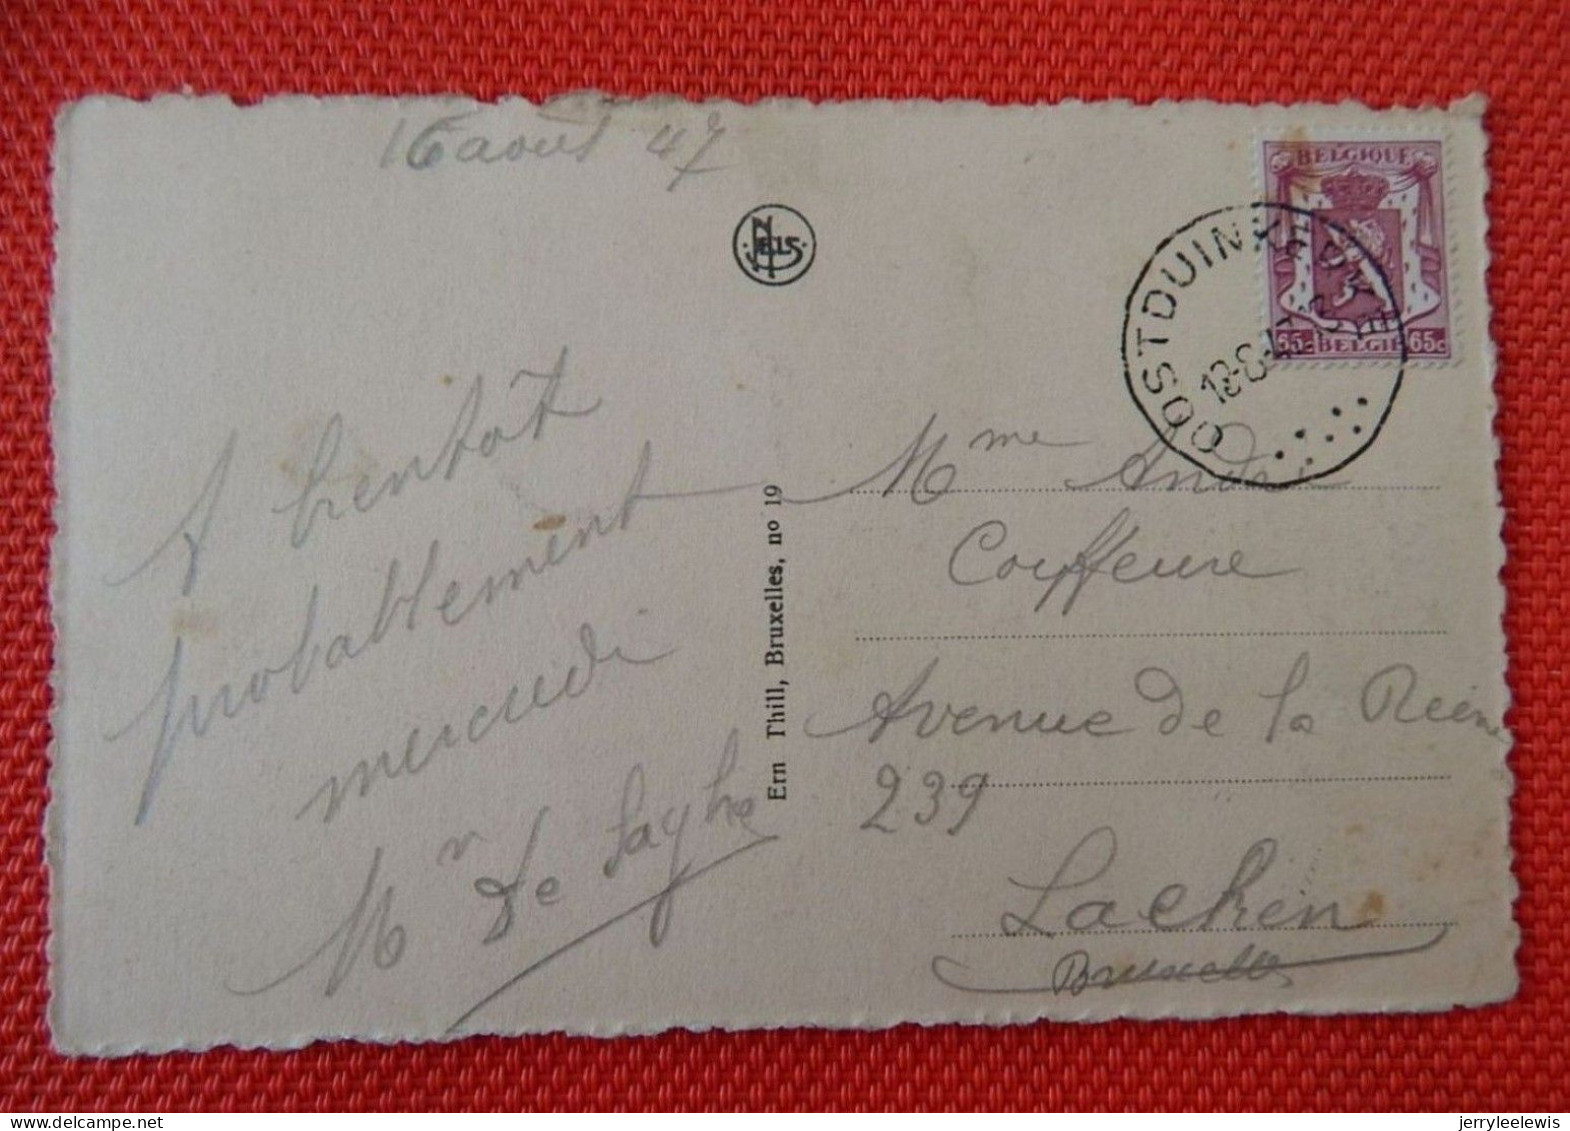 16 aout 47
NELS
BELGIQUE
65c BELGIE 65c
OOSTDUINKERKE
18-8-47
A bientot
probablement
mercredi
Mr De
Ern Thill, Bruxelles, no 19
Mme André
Coiffeure
Avenue de la Reine
239
Laeken
Bruxelles
jerryleelewis